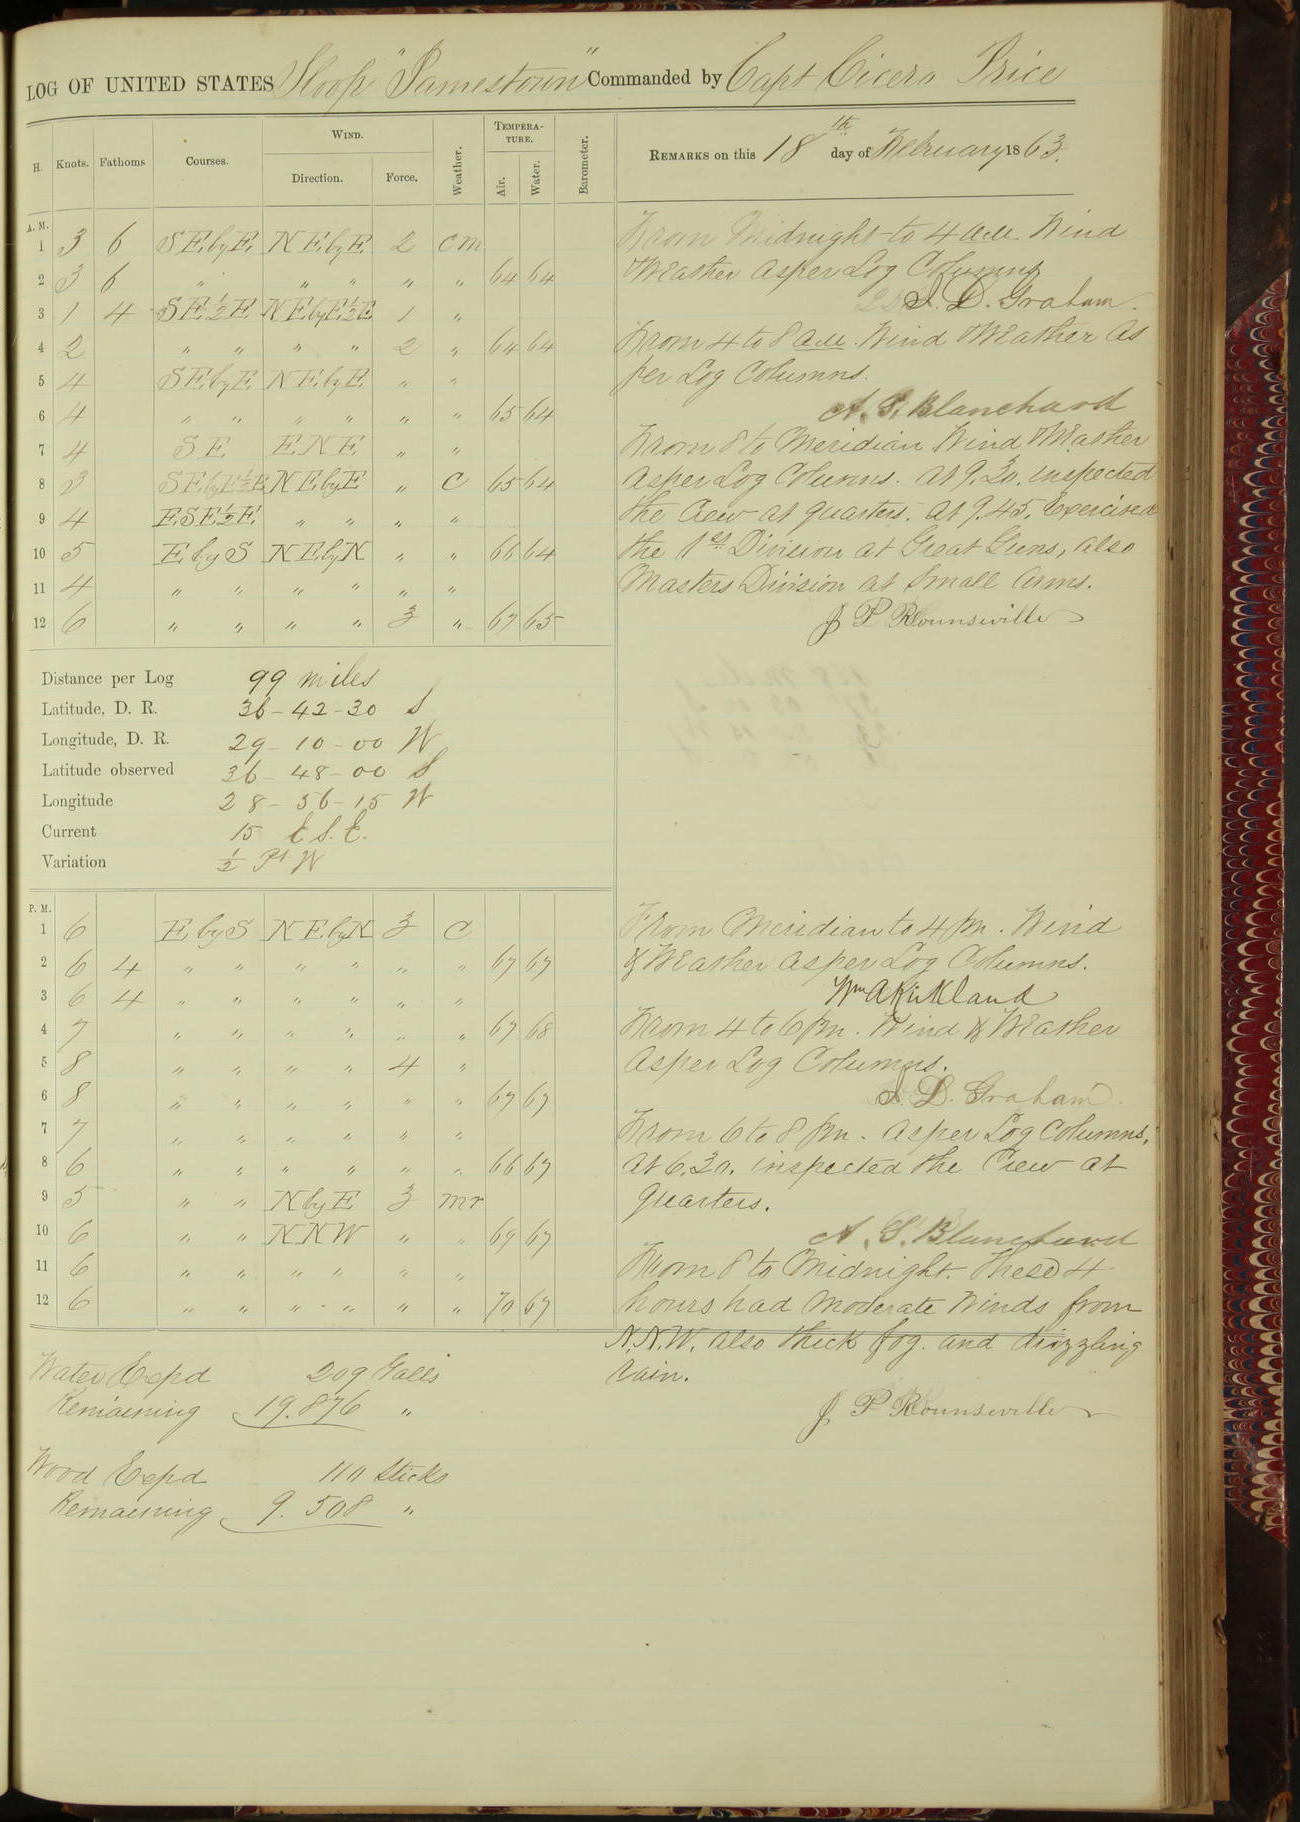 LOG OF UNITED STATES Sloop "Jamestown" Commanded by Capt Cicero Price
H. Knots. Fathoms Courses. WIND. Direction. Force. Weather. TEMPERATURE. Air. Water. Barometer.
REMARKS on this 18th day of February 1863.
A. M.
1 3 6 SE.byE. NE.byE. 2 cm
2 3 6 " " " " " 64 64
3 1 4 SE ½ E NEbyE½E 1 "
4 2 " " " " 2 " 64 64
5 4 SE.byE NE.byE " "
6 4 " " " " " " 65 64
7 4 SE ENE " "
8 3 SE.byE½E NE.byE " C 65 64
9 4 ESE½E. " " " "
10 5 E by S NE.byN " " 66 64
11 4 " " " " " "
12 6 " " " " 3 " 67 65
From Midnight to 4 a.m. Wind
Weather as per Log Columns
S. D. Graham.
From 4 to 8 a.m. Wind Weather As
per Log Columns.
A. S. Blanchard
From 8 to Meridian Wind Weather
as per Log Columns. At 9.30. inspected
the Crew at quarters. At 9.45. Exercised
the 1st Division at Great Guns, also
Masters Division at Small Arms.
J P Rounseville
Distance per Log 99 miles
Latitude, D. R. 36-42-30 S
Longitude, D. R. 29-10-00 W
Latitude observed 36-48-00 S
Longitude 28-56-15 W
Current 15 E.S.E.
Variation ½ Pt W
P. M.
1 6 E by S NE.byN 3 C
2 6 4 " " " " " " 67 67
3 6 4 " " " " " "
4 7 " " " " " " 67 68
5 8 " " " " 4 "
6 8 " " " " " " 67 67
7 7 " " " " " "
8 6 " " " " " " 66 67
9 5 " " N by E 3 mr
10 6 " " NNW " " 69 67
11 6 " " " " " "
12 6 " " " " " " 70 67
From Meridian to 4 pm. Wind
& Weather as per Log Columns.
Wm A Kirkland
From 4 to 6 pm. Wind & Weather
as per Log Columns.
S. D. Graham.
From 6 to 8 pm. as per Log Columns,
At 6.30. inspected the Crew at
quarters.
A. S. Blanchard
From 8 to Midnight. These 4
hours had moderate Winds from
N.N.W. also thick fog. and drizzling
rain.
J P Rounseville
Water Expd 209 Galls
Remaining 19.876 "
Wood Expd 110 Sticks
Remaining 9.508 "